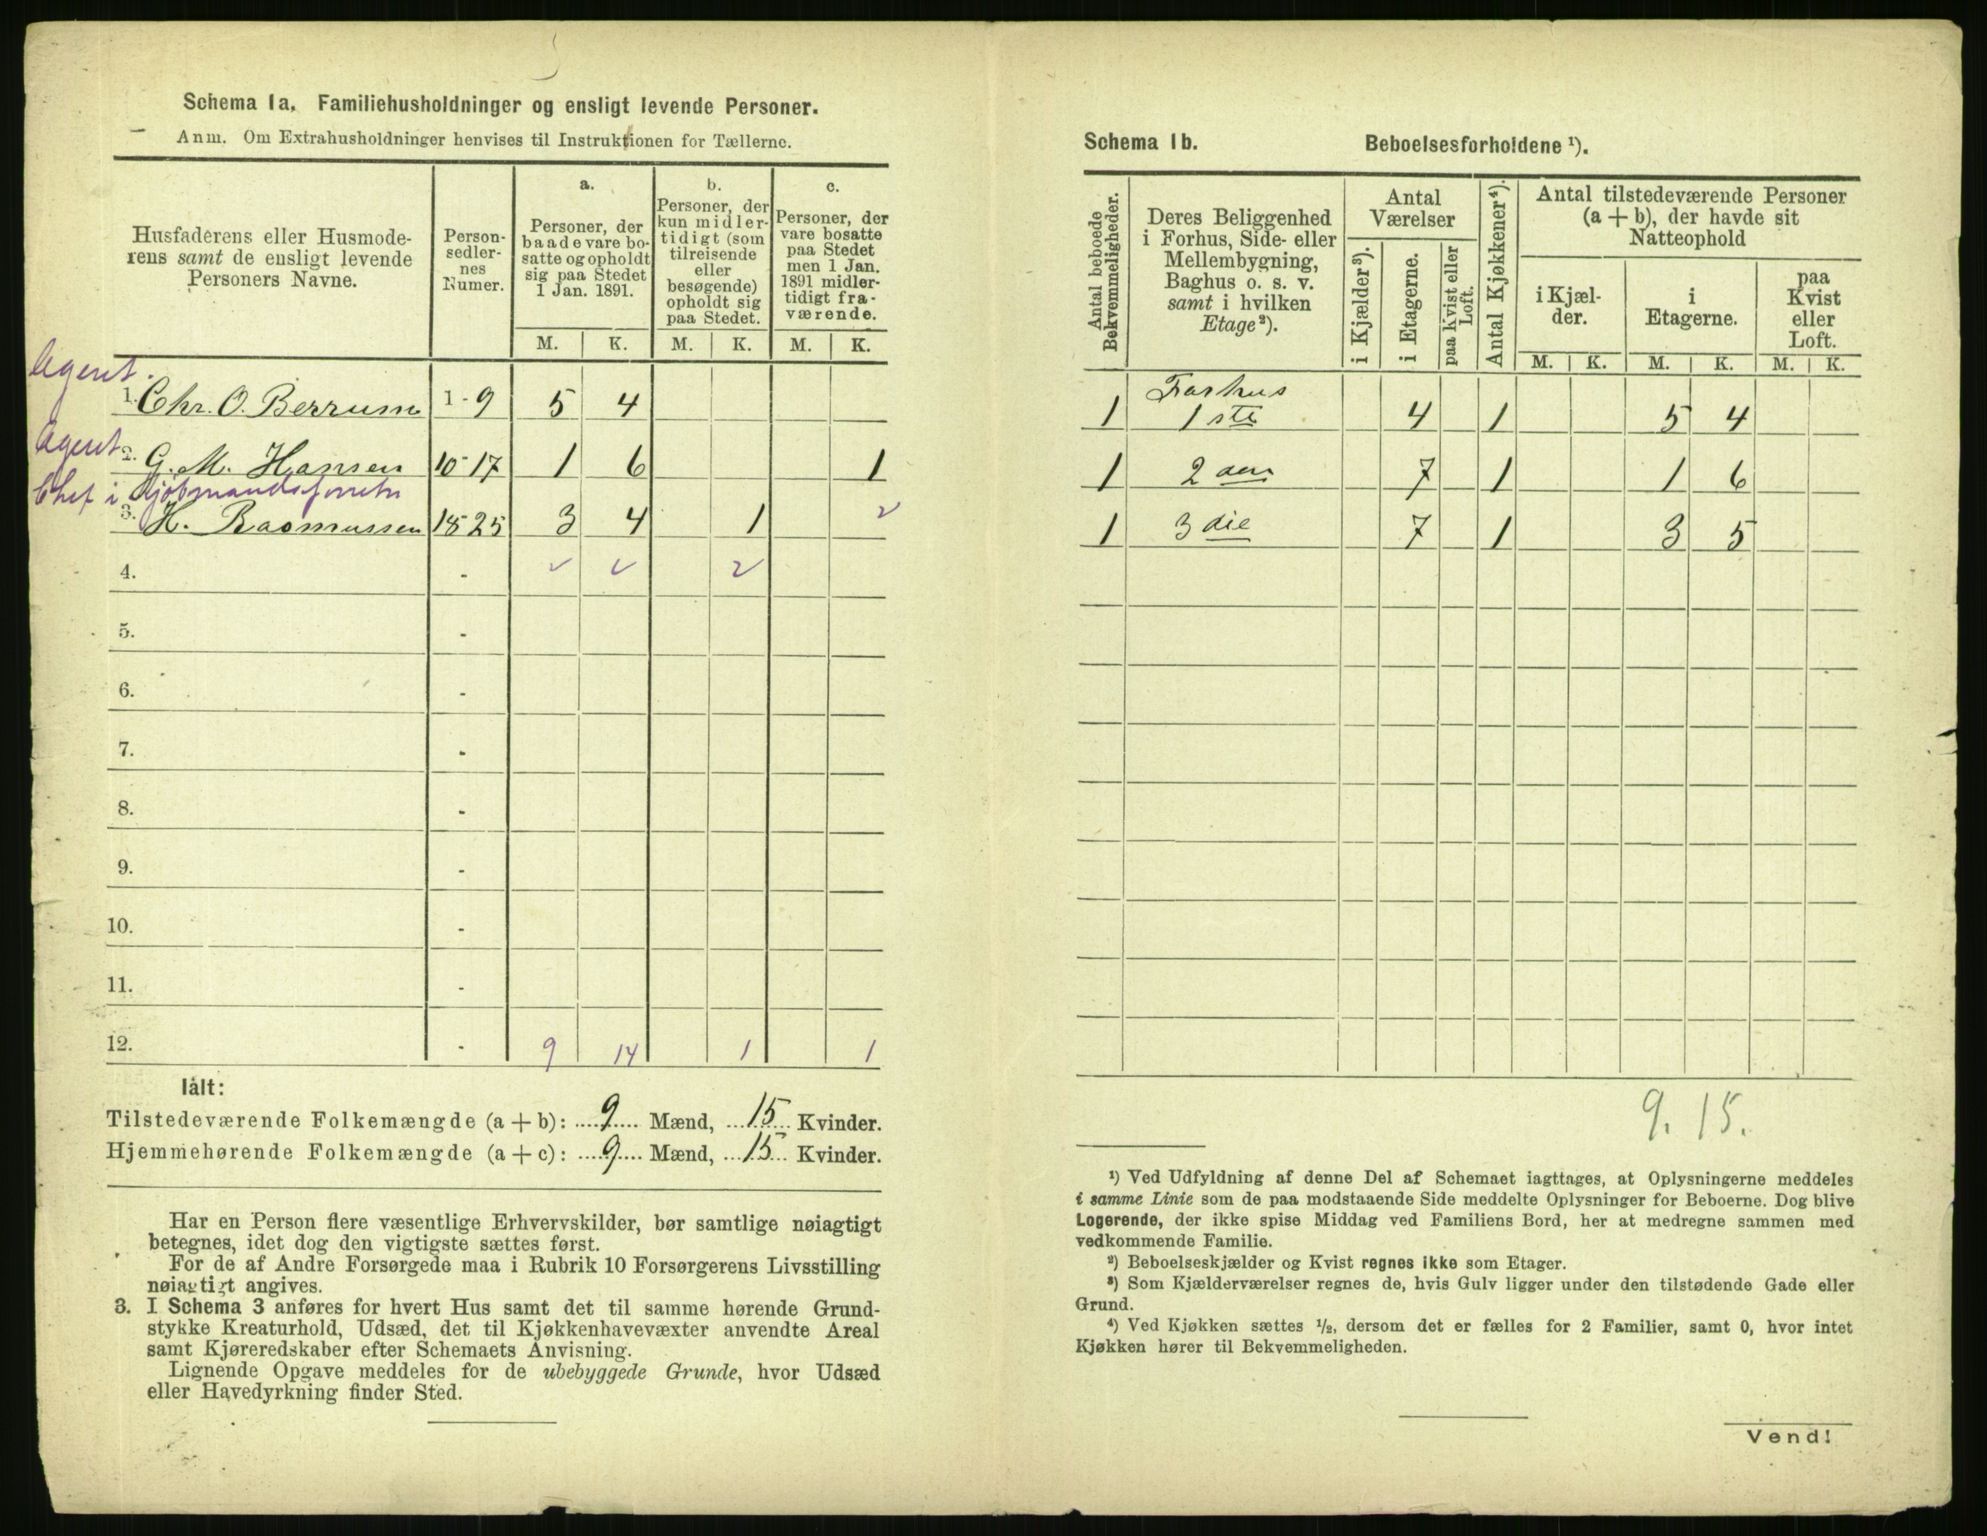 Schema 1a. Familiehusholdninger og ensligt levende Personer.
Anm. Om Extrahusholdninger henvises til Instruktionen for Tællerne.
Husfaderens eller Husmoderens samt de ensligt levende Personers Navne.
Personsedlernes Numer.
a.
Personer, der baade vare bosatte og opholdt sig paa Stedet 1 Jan. 1891.
b.
Personer, der kun midlertidigt (som tilreisende eller besøgende) opholdt sig paa Stedet.
c.
Personer, der vare bosatte paa Stedet men 1 Jan. 1891 midlertidigt fraværende.
M. K. M. K. M. K.
Agent.
1. Chr. O. Berrum 1 - 9 5 4
Agent
2. G. M. Hansen 10 - 17 1 6 1
Chef i Kjøbmandsforretn
3. H. Rasmussen 18 25 3 4 1 2
4. - v v 2
5. -
6. -
7. -
8. -
9. -
10. -
11. -
12. - 9 14 1 1
Ialt:
Tilstedeværende Folkemængde (a + b): 9 Mænd, 15 Kvinder.
Hjemmehørende Folkemængde (a + c): 9 Mænd, 15 Kvinder.
Har en Person flere væsentlige Erhvervskilder, bør samtlige nøiagtigt
betegnes, idet dog den vigtigste sættes først.
For de af Andre Forsørgede maa i Rubrik 10 Forsørgerens Livsstilling
nøiagtigt angives.
3. I Schema 3 anføres for hvert Hus samt det til samme hørende Grund-
stykke Kreaturhold, Udsæd, det til Kjøkkenhavevæxter anvendte Areal
samt Kjøreredskaber efter Schemaets Anvisning.
Lignende Opgave meddeles for de ubebyggede Grunde, hvor Udsæd
eller Havedyrkning finder Sted.
Schema 1b. Beboelsesforholdene ¹).
Antal beboede Bekvemmeligheder.
Deres Beliggenhed i Forhus, Side- eller Mellembygning, Baghus o. s. v. samt i hvilken Etage ²).
Antal Værelser
i Kjælder ³).
i Etagerne.
paa Kvist eller Loft.
Antal Kjøkkener ⁴).
Antal tilstedeværende Personer (a + b), der havde sit Natteophold
i Kjælder.
i Etagerne.
paa Kvist eller Loft.
M. K. M. K. M. K.
1 Forhus 1 ste 4 1 5 4
1 2 den 7 1 1 6
1 3 die 7 1 3 5
9. 15.
¹) Ved Udfyldning af denne Del af Schemaet iagttages, at Oplysningerne meddeles
i samme Linie som de paa modstaaende Side meddelte Oplysninger for Beboerne. Dog blive
Logerende, der ikke spise Middag ved Familiens Bord, her at medregne sammen med
vedkommende Familie.
²) Beboelseskjælder og Kvist regnes ikke som Etager.
³) Som Kjælderværelser regnes de, hvis Gulv ligger under den tilstødende Gade eller
Grund.
⁴) Ved Kjøkken sættes ½, dersom det er fælles for 2 Familier, samt 0, hvor intet
Kjøkken hører til Bekvemmeligheden.
Vend!